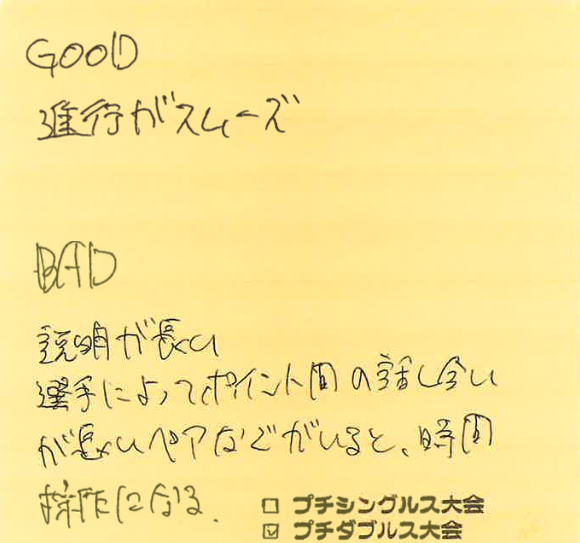 GOOD
進行がスムーズ
BAD
説明が長い
選手によってポイント間の話し合い
が長いペアなどがいると、時間
になる.
□ プチシングルス大会
☑ プチダブルス大会